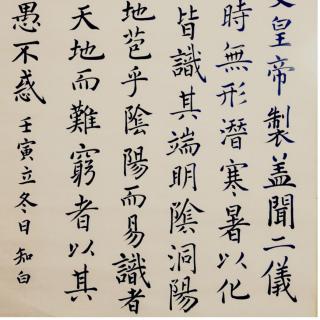 文皇帝製蓋聞二儀
時無形潛寒暑以化
皆識其端明陰洞陽
地苞乎陰陽而易識者
天地而難窮者以其
愚不惑壬寅立冬日知白